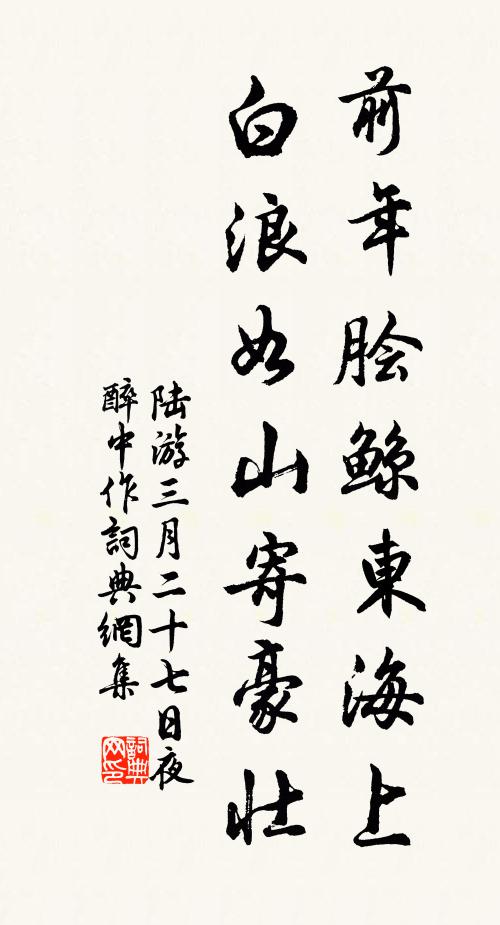 前年脍鲸東海上
白浪如山寄豪壮
陆游三月二十七日夜
醉中作詞典網集
詞典
网印